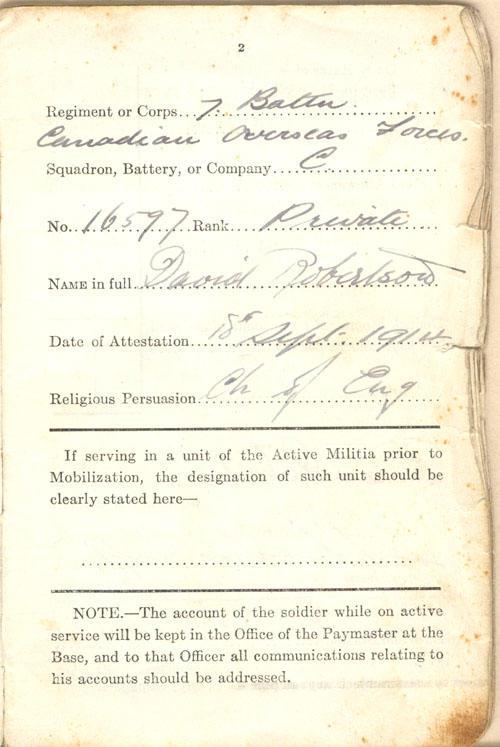 2
Regiment or Corps...7 Battn.
Canadian Overseas Forces.
Squadron, Battery, or Company...C
No. 16597 Rank Private
NAME in full David Robertson
Date of Attestation 18th Sept. 1914
Religious Persuasion Ch of Eng
If serving in a unit of the Active Militia prior to
Mobilization, the designation of such unit should be
clearly stated here—
NOTE.—The account of the soldier while on active
service will be kept in the Office of the Paymaster at the
Base, and to that Officer all communications relating to
his accounts should be addressed.